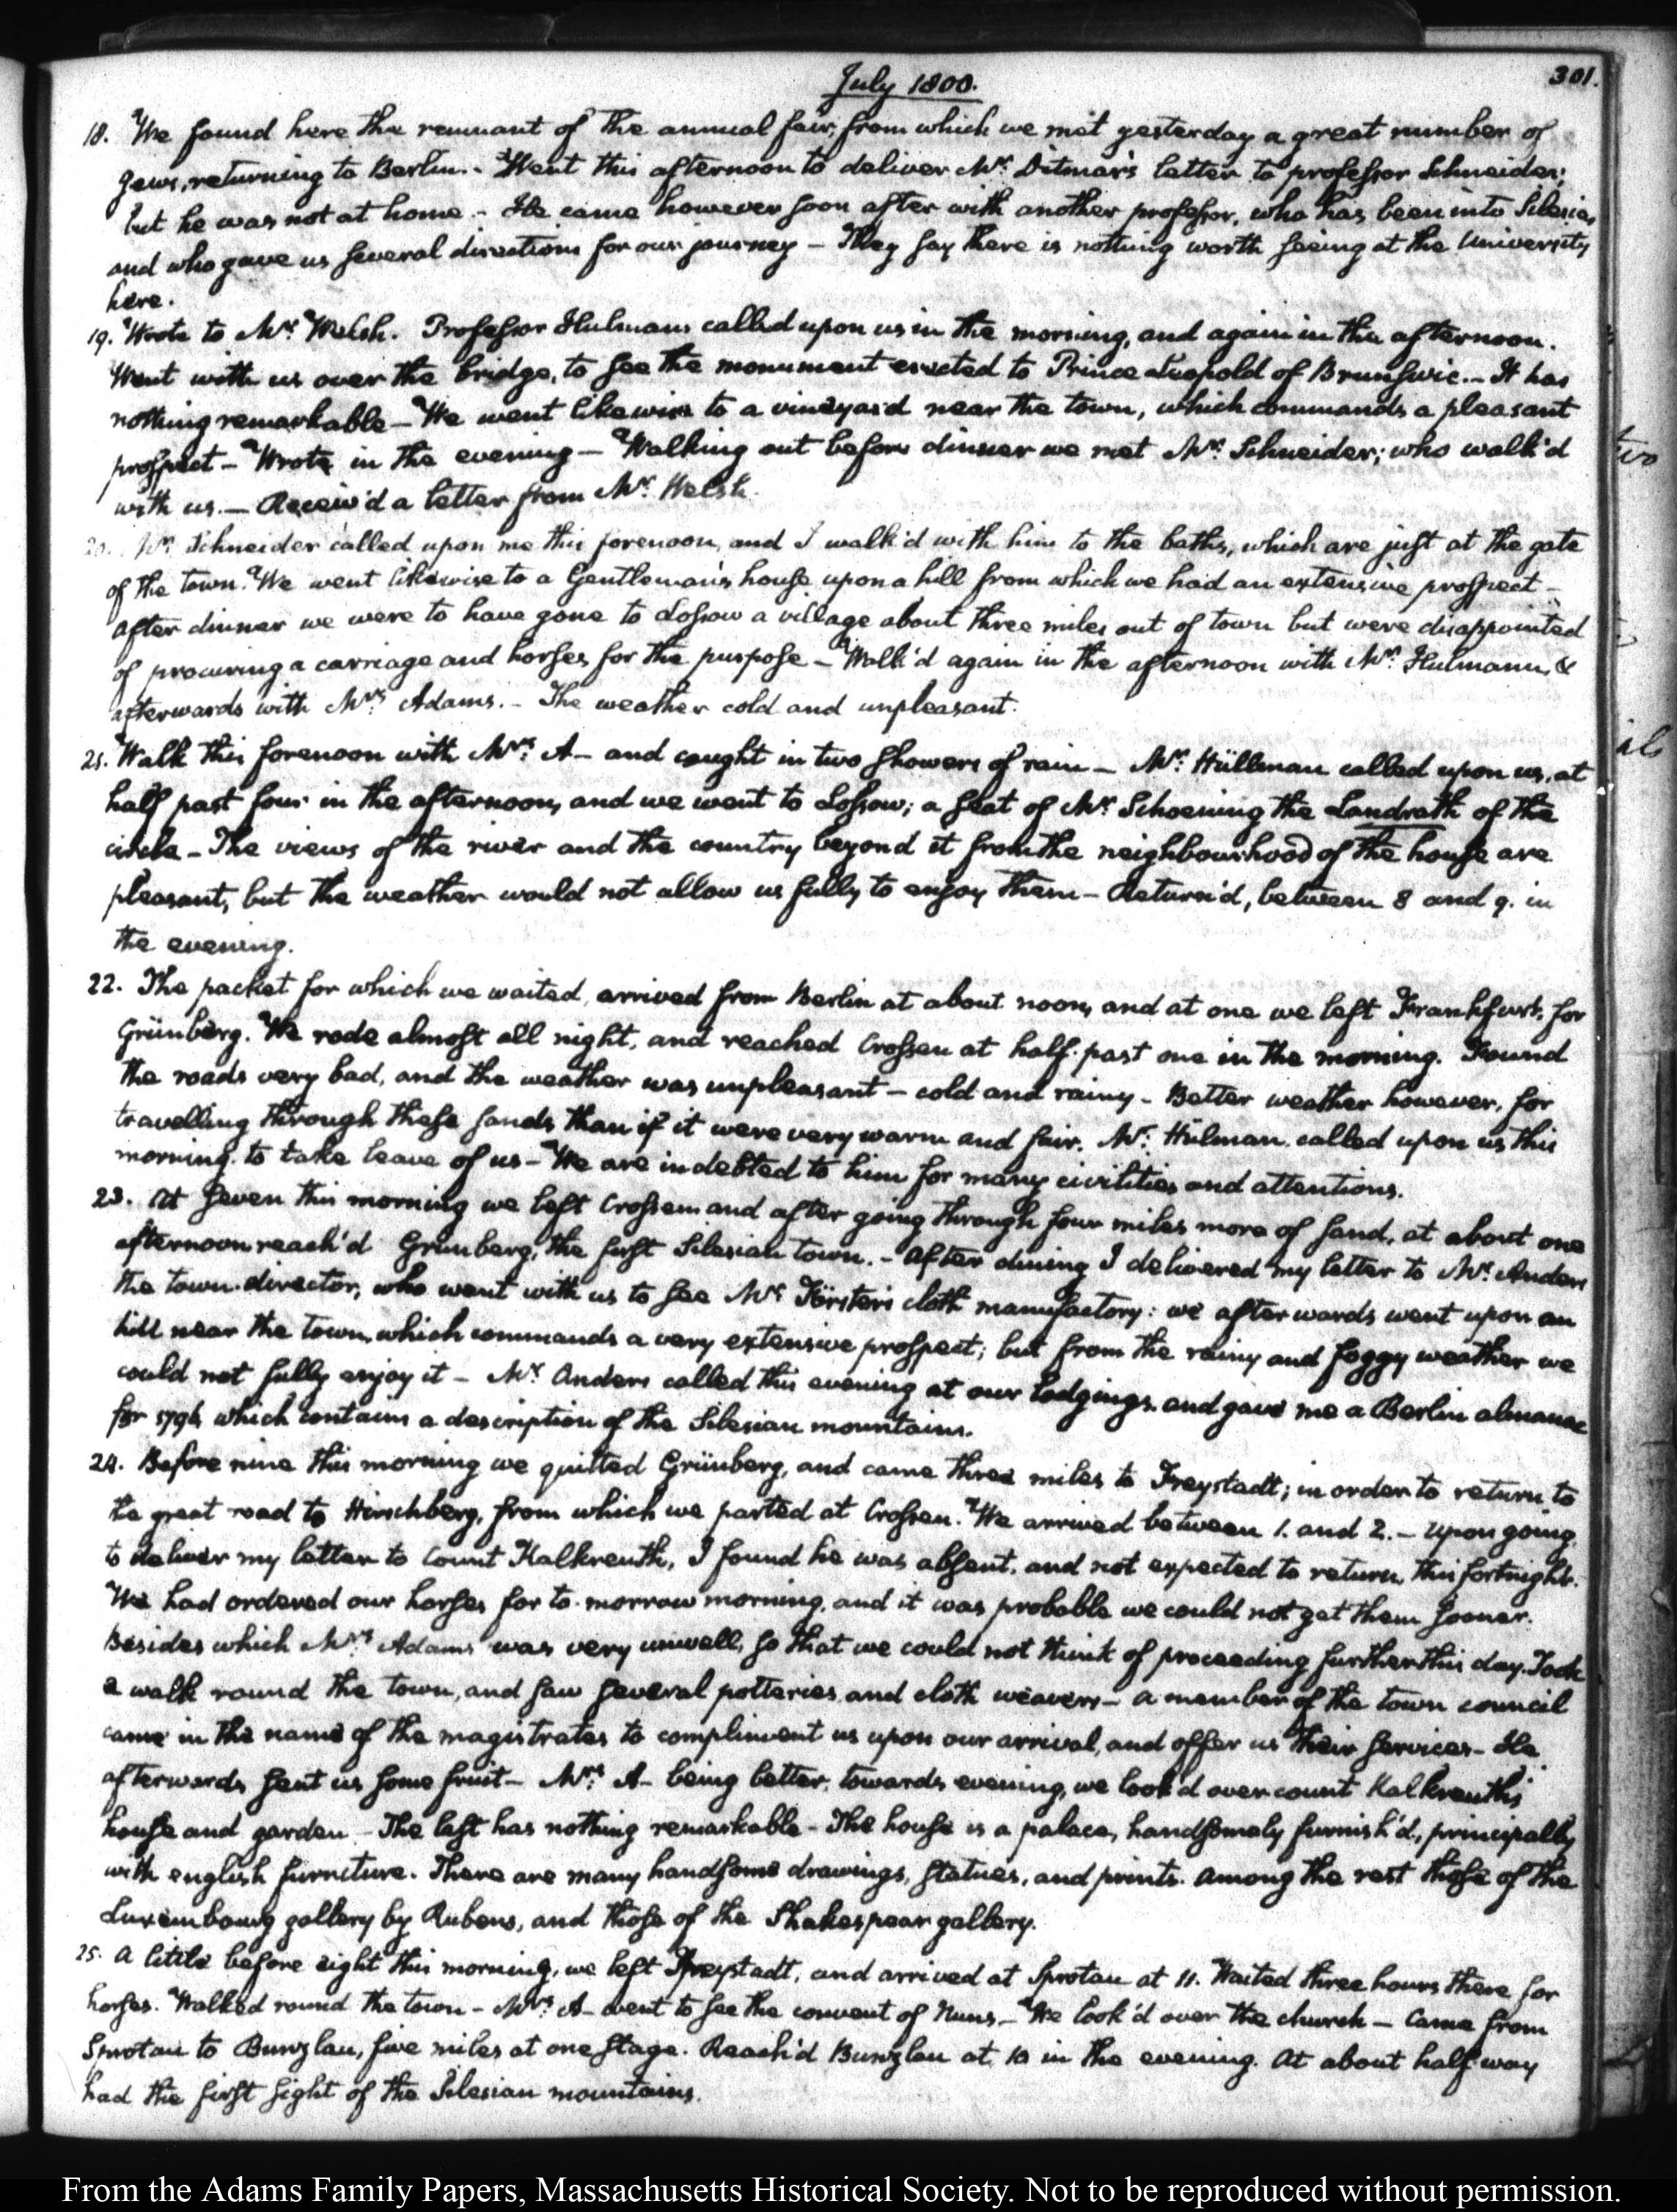 July 1800.
301.
18. We found here the remnant of the annual fair, from which we met yesterday a great number of
Jews, returning to Berlin. - Went this afternoon to deliver Mr. Ditmar's letter to professor Schneider;
but he was not at home. - He came however soon after with another professor, who has been into Silesia,
and who gave us several directions for our journey - They say there is nothing worth seeing at the University
here.
19. Wrote to Mr. Welsh. Professor Hulmann called upon us in the morning, and again in the afternoon.
Went with us over the bridge, to see the monument erected to Prince Leopold of Brunswic. - It has
nothing remarkable - We went likewise to a vineyard near the town, which commands a pleasant
prospect - Wrote in the evening - Walking out before dinner we met Mr. Schneider; who walk'd
with us. - Receiv'd a letter from Mr. Welsh.
20. Mr. Schneider called upon me this forenoon, and I walk'd with him to the baths, which are just at the gate
of the town. We went likewise to a Gentleman's house upon a hill from which we had an extensive prospect -
After dinner we were to have gone to Lossow a village about three miles out of town but were disappointed
of procuring a carriage and horses for the purpose - Walk'd again in the afternoon with Mr. Hulmann, &
afterwards with Mrs. Adams. - The weather cold and unpleasant.
21. Walk this forenoon with Mrs. A- and caught in two showers of rain - Mr. Hüllman called upon us, at
half past four in the afternoon, and we went to Lossow; a seat of Mr. Schoening the Landrath of the
circle - The views of the river and the country beyond it from the neighbourhood of the house are
pleasant, but the weather would not allow us fully to enjoy them - Return'd, between 8 and 9. in
the evening.
22. The packet for which we waited, arrived from Berlin at about noon, and at one we left Frankfurt, for
Grünberg. We rode almost all night, and reached Crossen at half past one in the morning. Found
the roads very bad, and the weather was unpleasant - cold and rainy - Better weather however, for
travelling through these sands than if it were very warm and fair. Mr. Hülman called upon us this
morning to take leave of us - We are indebted to him for many civilities and attentions.
23. At seven this morning we left Crossen and after going through four miles more of sand, at about one
afternoon reach'd Grünberg, the first Silesian town. - After dining I delivered my letter to Mr. Anders
the town-director, who went with us to see Mr. Försters cloth manufactory: we afterwards went upon an
hill near the town, which commands a very extensive prospect; but from the rainy and foggy weather we
could not fully enjoy it - Mr. Anders called this evening at our lodgings, and gave me a Berlin almanac
for 1796 which contains a description of the Silesian mountains.
24. Before nine this morning we quitted Grünberg, and came three miles to Freystadt; in order to return to
the great road to Hirschberg, from which we parted at Crossen. We arrived between 1. and 2. - Upon going
to deliver my letter to Count Kalkreuth, I found he was absent, and not expected to return this fortnight.
We had ordered our horses for to-morrow morning, and it was probable we could not get them sooner.
Besides which Mrs. Adams was very unwell, so that we could not think of proceeding further this day. Took
a walk round the town, and saw several potteries and cloth weavers - A member of the town council
came in the name of the magistrates to compliment us upon our arrival, and offer us their services - He
afterwards sent us some fruit - Mrs. A- being better, towards evening, we look'd over count Kalkreuth's
house and garden - The last has nothing remarkable - The house is a palace, handsomely furnish'd, principally
with english furniture. There are many handsome drawings, statues, and prints. Among the rest those of the
Luxembourg gallery by Rubens, and those of the Shakespear gallery.
25. A little before eight this morning, we left Freystadt, and arrived at Sprotau at 11. Waited three hours there for
horses. Walked round the town - Mrs. A- went to see the convent of Nuns - We look'd over the church - Came from
Sprotau to Bunzlau, five miles at one stage. Reach'd Bunzlau at 10 in the evening. At about half way
had the first sight of the Silesian mountains.
From the Adams Family Papers, Massachusetts Historical Society. Not to be reproduced without permission.